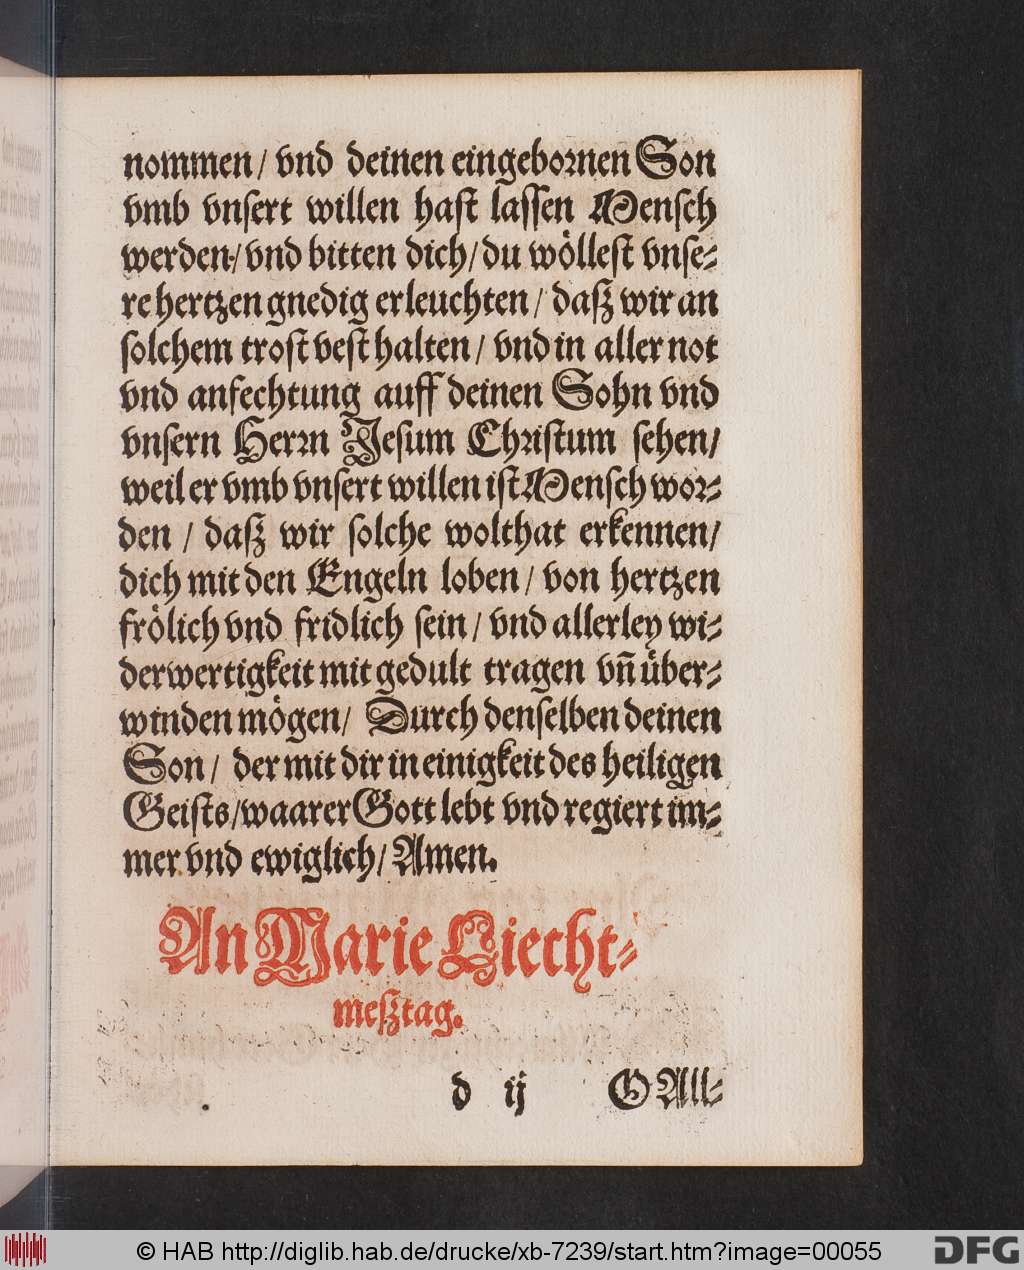 nommen / vnd deinen eingebornen Son
vmb vnsert willen hast lassen Mensch
werden / vnd bitten dich / du wöllest vnse-
re hertzen gnedig erleuchten / dasz wir an
solchem trost vest halten / vnd in aller not
vnd anfechtung auff deinen Sohn vnd
vnsern Herrn Jesum Christum sehen /
weil er vmb vnsert willen ist Mensch wor-
den / dasz wir solche wolthat erkennen /
dich mit den Engeln loben / von hertzen
frölich vnd fridlich sein / vnd allerley wi-
derwertigkeit mit gedult tragen vn̄ über-
winden mögen / Durch denselben deinen
Son / der mit dir in einigkeit des heiligen
Geists / waarer Gott lebt vnd regiert im-
mer vnd ewiglich / Amen.
An Marie Liecht-
mesztag.
d ij O All-
© HAB http://diglib.hab.de/drucke/xb-7239/start.htm?image=00055
DFG